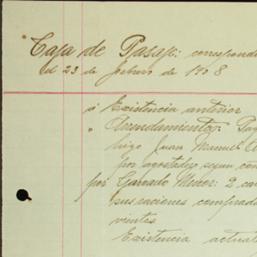 Casa de Pasaje: correspond
al 23 de Febrero de 1908
Existencia anterior
Arrendamiento: Pag
higo Juan Manuel
los agostados, segun con
por Ganado Menor: 2 ca
sus raciones comprada
vientes
Existencia actual